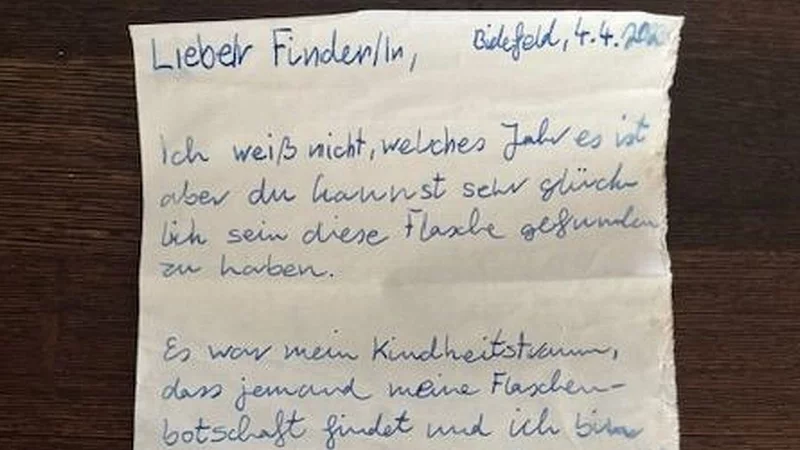 Lieber Finder/in,
Bielefeld, 4.4.
Ich weiß nicht, welches Jahr es ist
aber du kannst sehr glück
lich sein diese Flasche gefunden
zu haben.
Es war mein Kindheitstraum,
dass jemand meine Flaschen-
botschaft findet und ich bin